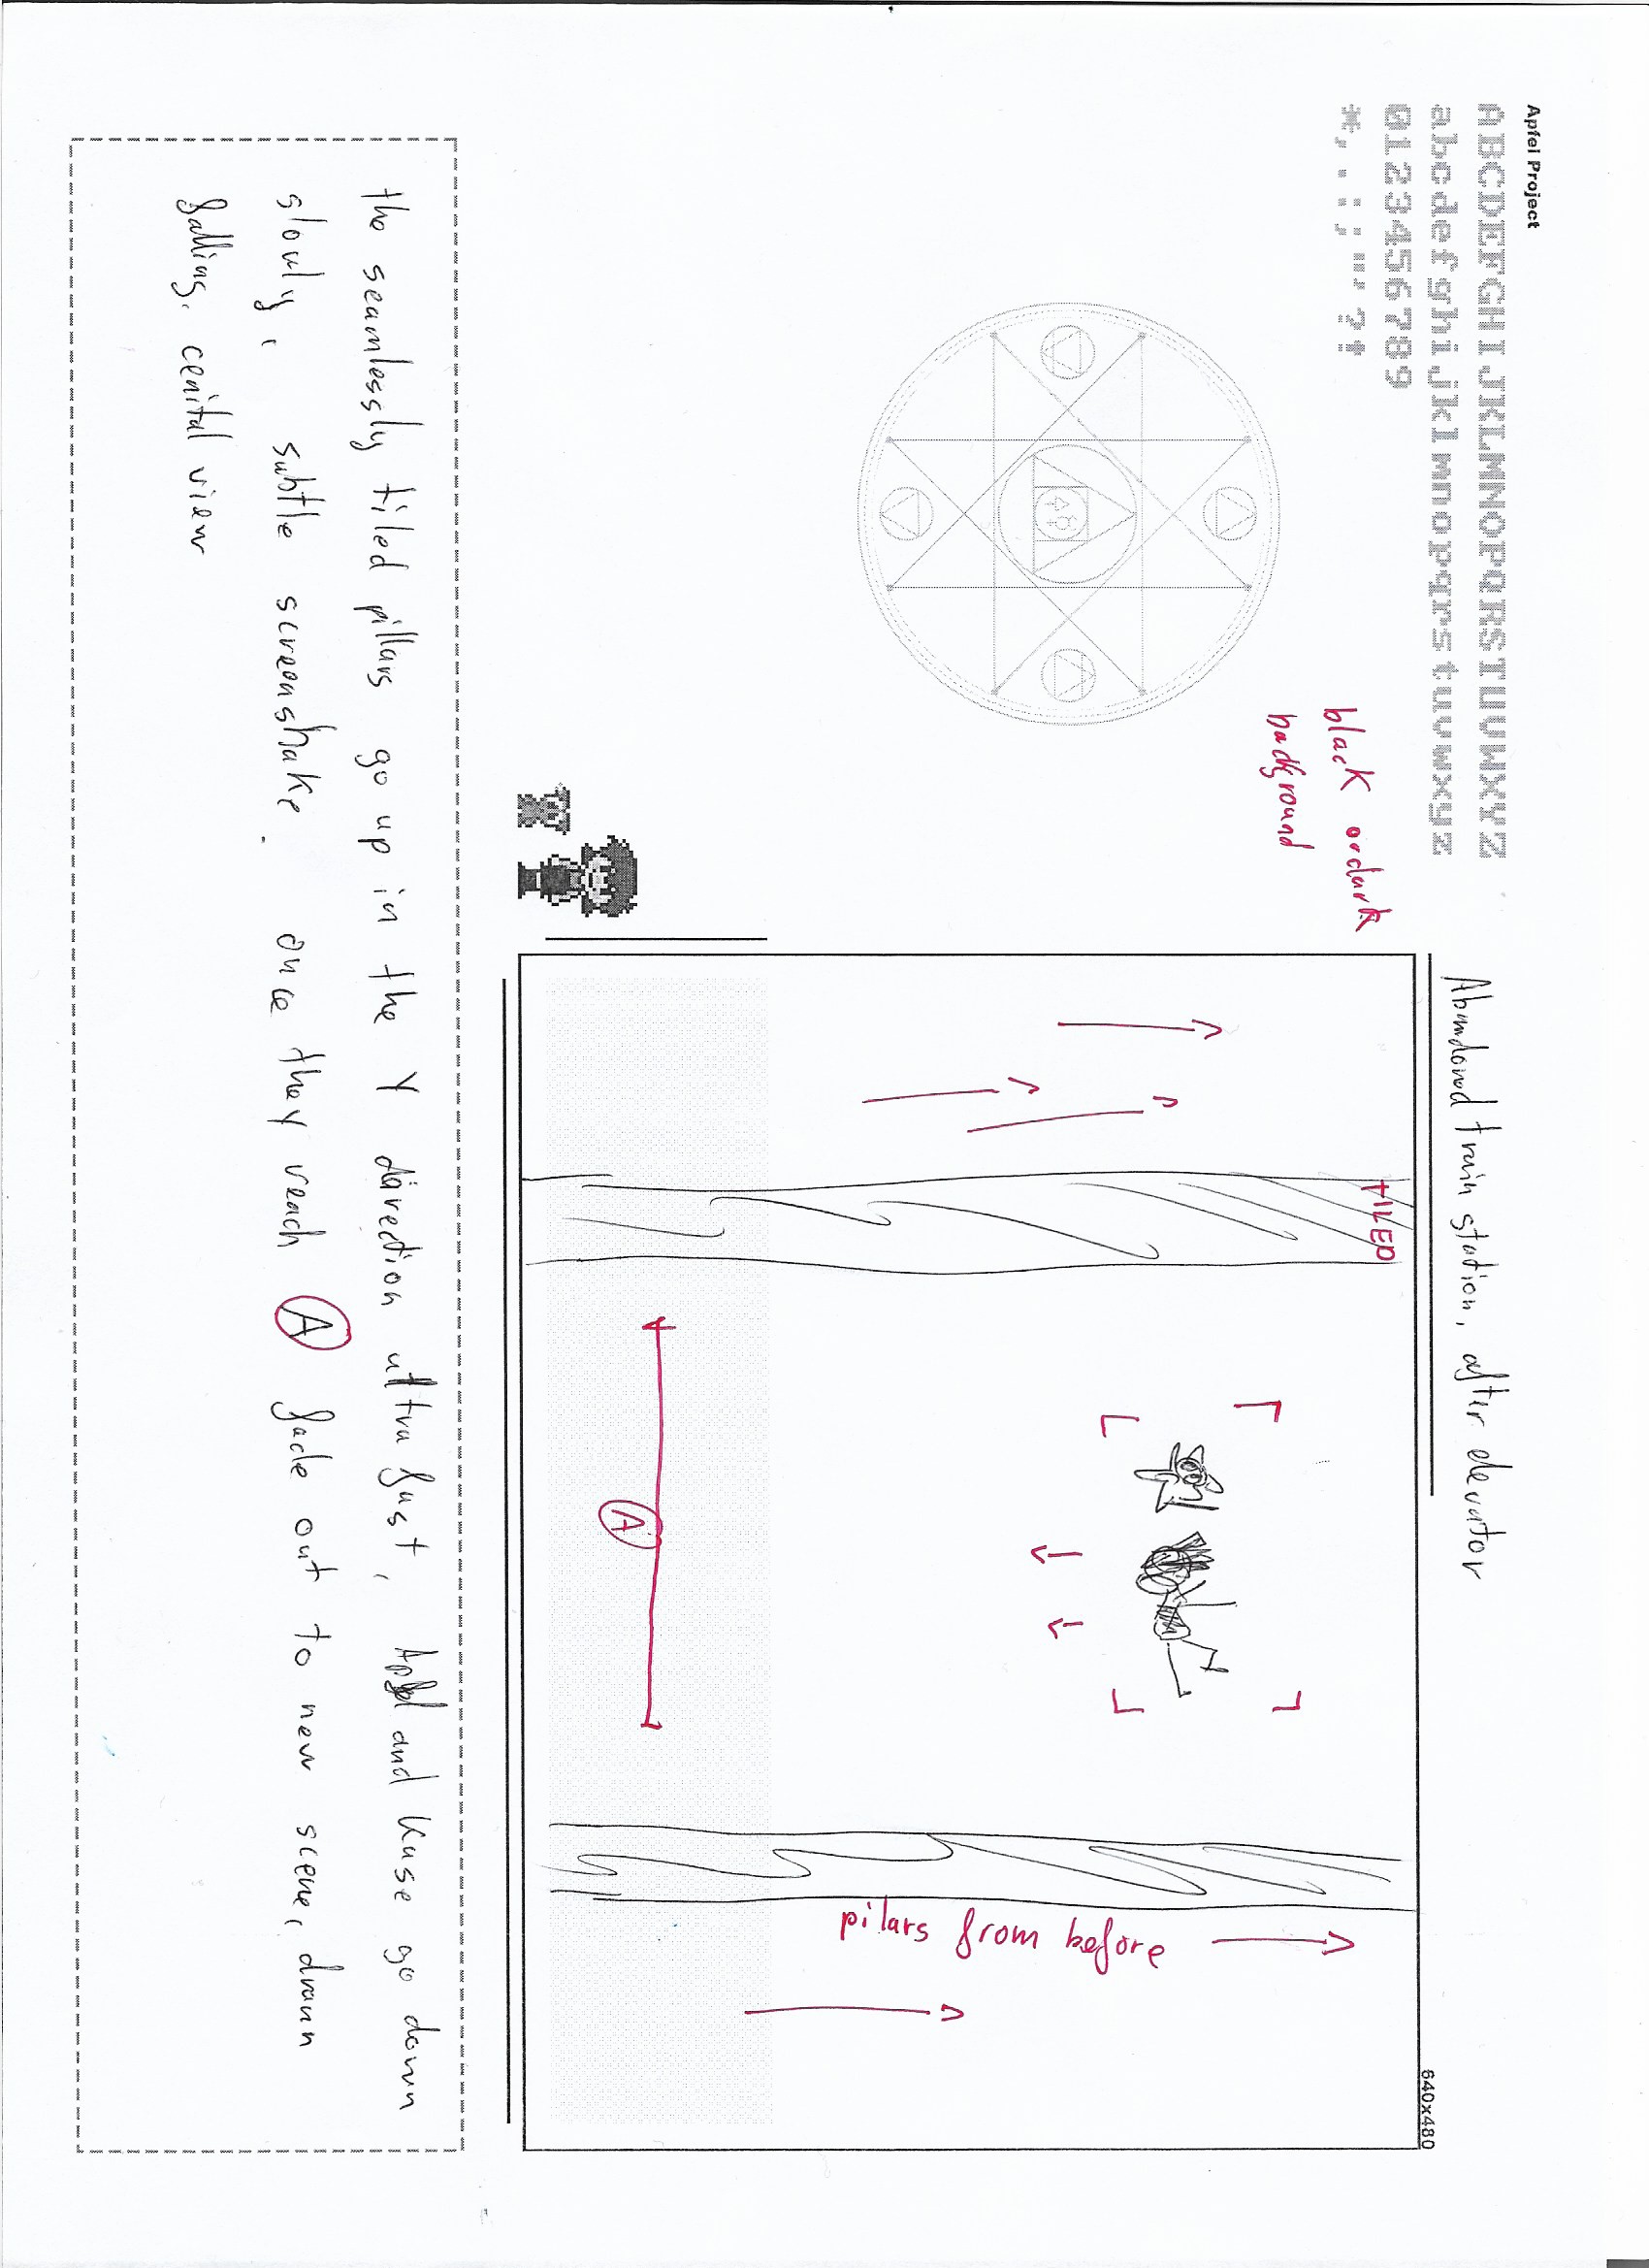 Apfel Project
ABCDEFGHIJKLMNOPQRSTUVWXYZ
abcdefghijklmnopqrstuvwxyz
0123456789
*,.:;"'?!
black or dark
background
Abandoned train station, after elevator
640x480
TILED
pilars from before
A
the seamlessly tiled pillars go up in the Y direction ultra fast, Apfel and Kase go down
slowly, subtle screenshake. once they reach A fade out to new scene, drawn
falling. cenital view